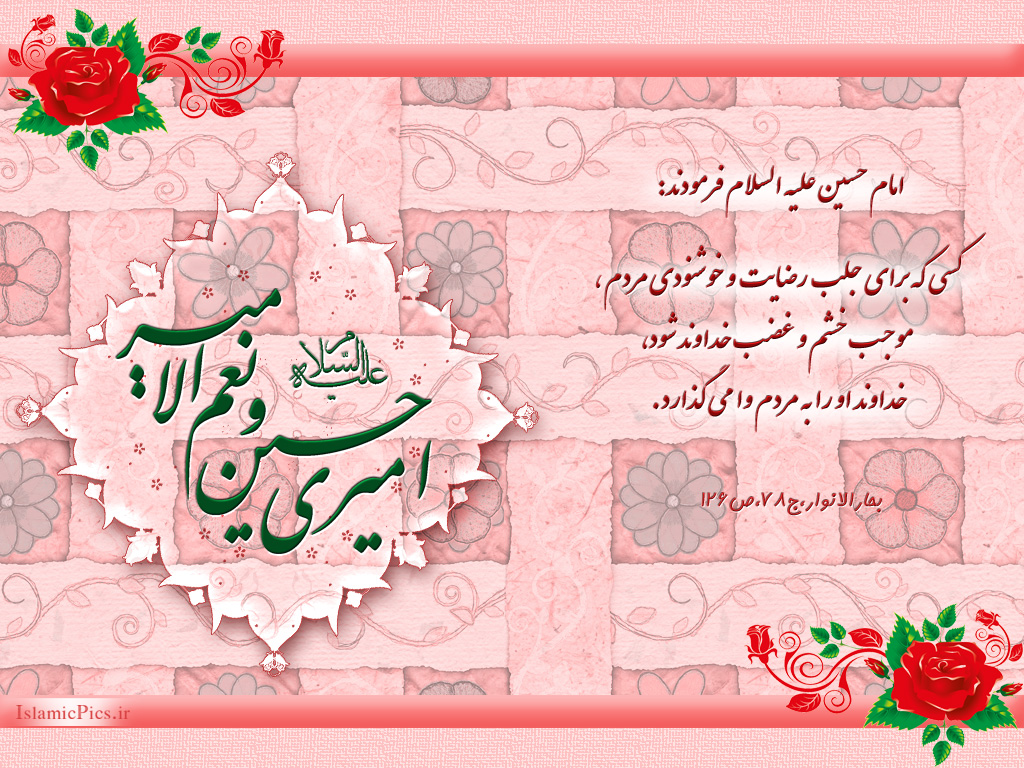 امام حسین علیه السلام فرمودند:
کسی که برای جلب رضایت و خوشنودی مردم ،
موجب خشم و غضب خداوند شود،
خداوند او را به مردم وا می گذارد.
بحار الانوار،ج۷۸،ص۱۲۶
امیری حسین و نعم الامیر
علیه السَّلام
IslamicPics.ir